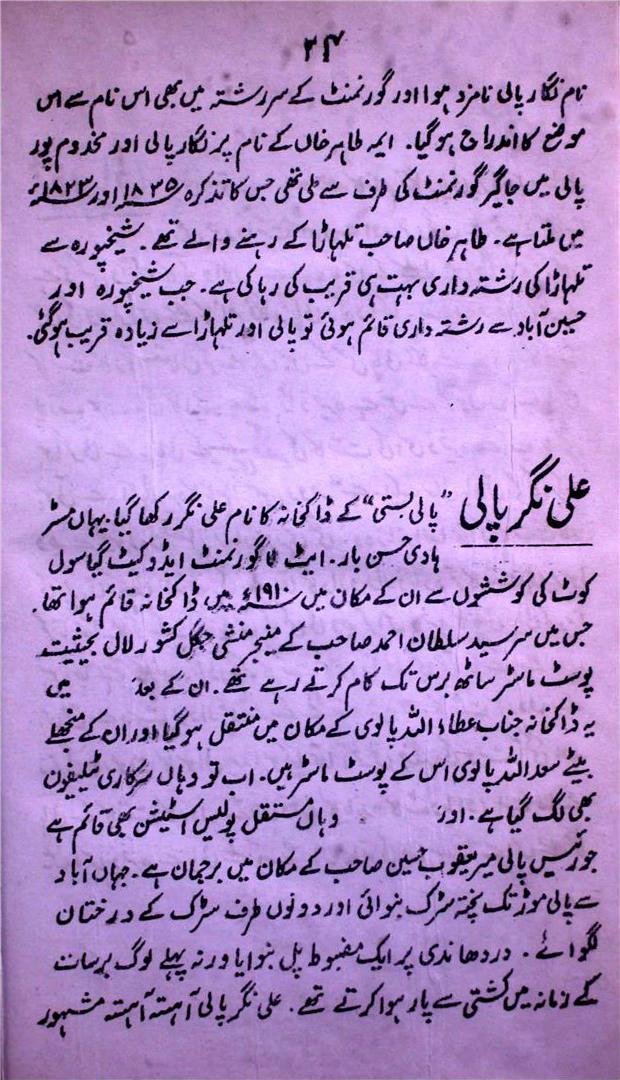 ۲۴
نام نگار پالی نامزد ہوا اور گورنمنٹ کے سررشتہ میں بھی اس نام سے اس
موضع کا اندراج ہوگیا۔ ایمہ طاہر خاں کے نام پر نگار پالی اور مخدوم پور
پالی میں جاگیر گورنمنٹ کی طرف سے ملی تھی جس کا تذکرہ ۱۸۳۵ اور ۱۸۲۳ء
میں ملتا ہے۔ طاہر خاں صاحب تلہاڑا کے رہنے والے تھے۔ شیخپورہ سے
تلہاڑا کی رشتہ داری بہت ہی قریب کی رہا کی ہے۔ جب شیخپورہ اور
حسین آباد سے رشتہ داری قائم ہوئی تو پالی اور تلہاڑا سے زیادہ قریب ہوگئی۔
علی نگر پالی
"پالی بستی" کے ڈاکخانہ کا نام علی نگر رکھا گیا۔ یہاں مسٹر
ہادی حسن بار۔ ایٹ لا گورنمنٹ ایڈوکیٹ گیا سول
کوٹ کی کوششوں سے ان کے مکان میں ۱۹۱۰ء میں ڈاکخانہ قائم ہوا تھا۔
جس میں سر سید سلطان احمد صاحب کے منیجر منشی جگل کشور لال بحیثیت
پوسٹ ماسٹر ساٹھ برس تک کام کرتے رہے تھے۔ ان کے بعد میں
یہ ڈاکخانہ جناب عطاء اللہ پالوی کے مکان میں منتقل ہوگیا اور ان کے منجھلے
بیٹے سعد اللہ پالوی اس کے پوسٹ ماسٹر ہیں۔ اب تو وہاں سرکاری ٹیلیفون
بھی لگ گیا ہے۔ اور وہاں مستقل پولیس اسٹیشن بھی قائم ہے
جو رئیس پالی میر یعقوب حسین صاحب کے مکان میں برجمان ہے۔ جہاں آباد
سے پالی موڑ تک پختہ سڑک بنوائی اور دونوں طرف سڑک کے درختان
لگوائے۔ دردھا ندی پر ایک مضبوط پل بنوایا ورنہ پہلے لوگ برسات
کے زمانہ میں کشتی سے پار ہوا کرتے تھے۔ علی نگر پالی آہستہ آہستہ مشہور